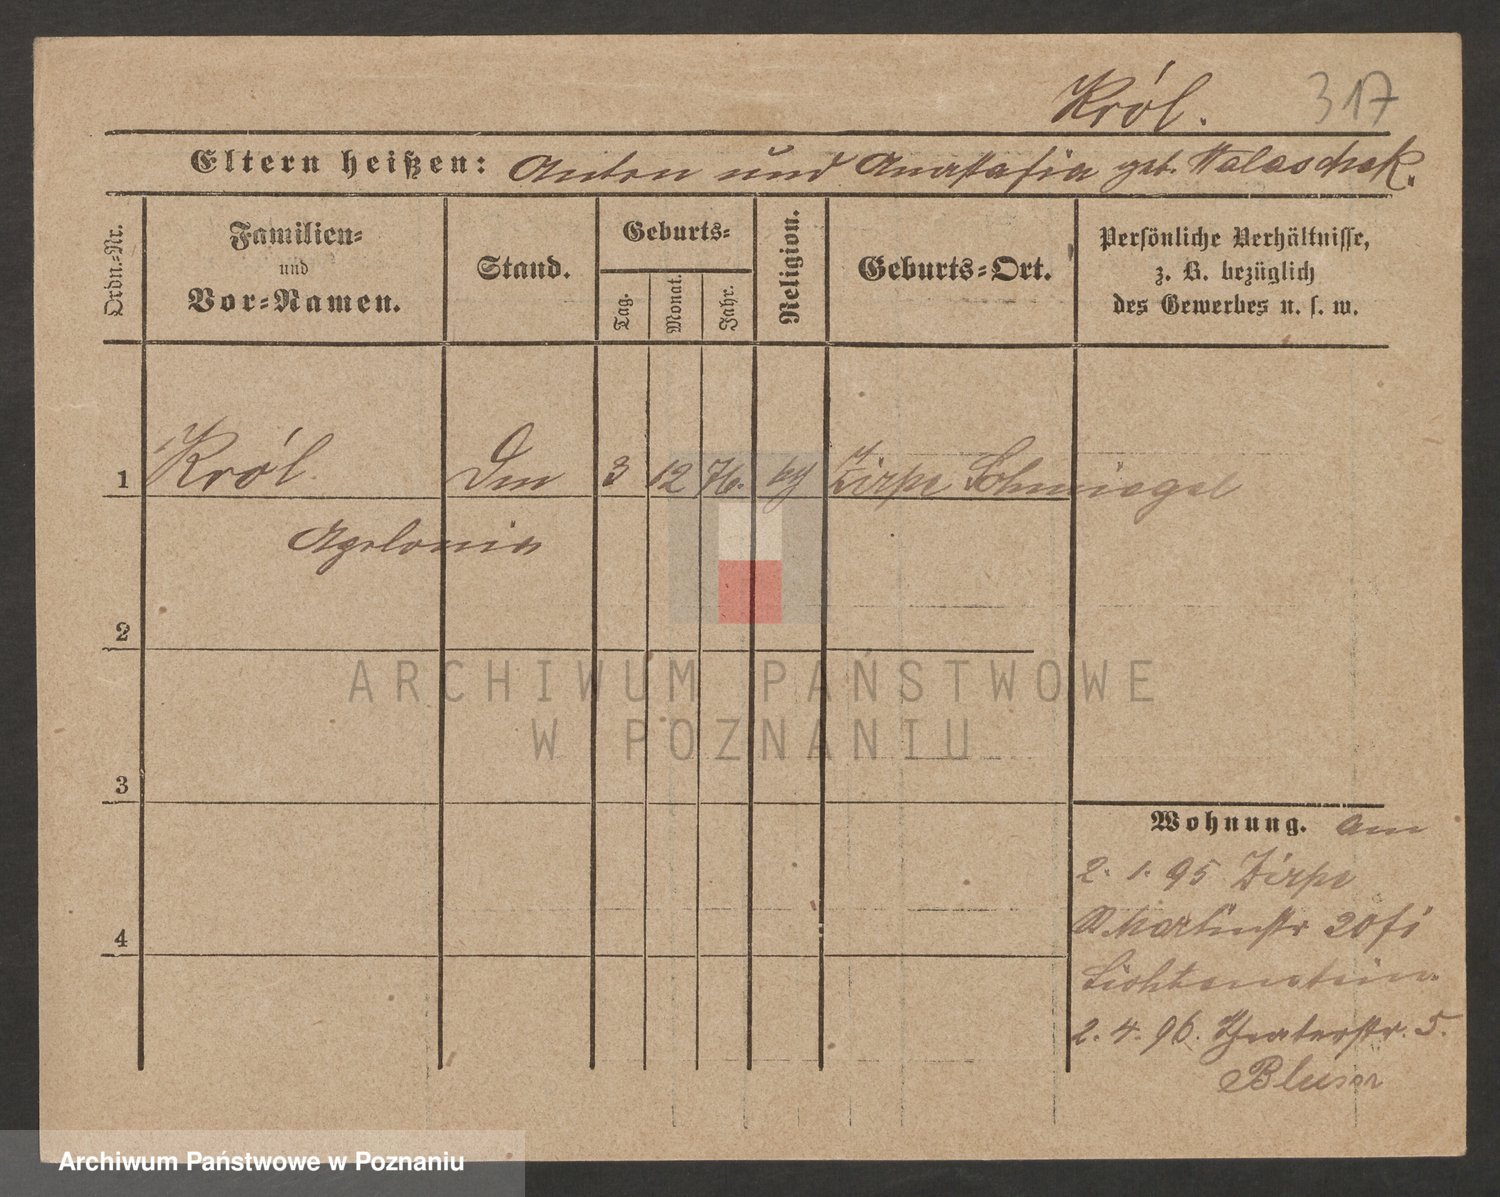 Król. 317
Eltern heißen: Anton und Anastasia geb. Walaschek.
Ordn.-Nr.
Familien-
und
Vor-Namen.
Stand.
Geburts-
Tag.
Monat.
Jahr.
Religion.
Geburts-Ort.
Persönliche Verhältnisse,
z. B. bezüglich
des Gewerbes u. s. w.
1 Król Dm 3 12 76. Zirpe Schmiegel
Apolonia
2
3
4
Wohnung. am
2. 1. 95 Zirpe
Martinstr 20 bei
Lichtenstein.
2. 4. 96. Theaterstr. 5.
ARCHIWUM PAŃSTWOWE
W POZNANIU
Archiwum Państwowe w Poznaniu